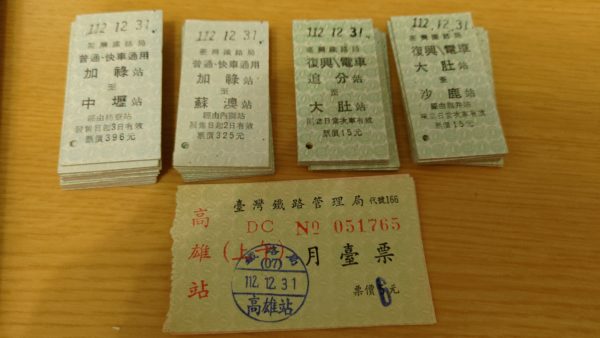 112.12.31
臺灣鐵路局
普通、快車通用
加祿站
至
中壢站
經由枋寮站
發售日起3日有效
票價396元
112.12.31
臺灣鐵路局
普通、快車通用
加祿站
至
蘇澳站
發售日起2日有效
票價325元
112.12.31
臺灣鐵路局
復興\電車
追分站
至
大肚站
限當日當次車有效
票價15元
112.12.31
臺灣鐵路局
復興\電車
大肚站
至
沙鹿站
限當日當次車有效
票價15元
臺灣鐵路管理局 代號166
高雄站
DC No 051765
(上午) 月臺票
(07)
112.12.31
高雄站
票價6元